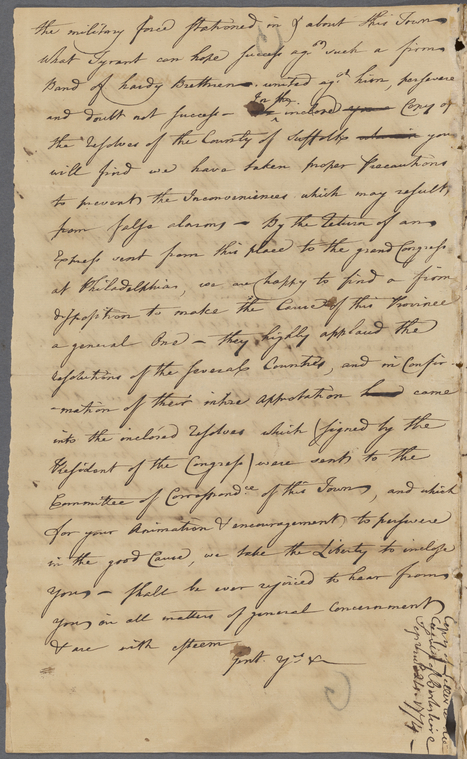 the military force stationed in & about this Town
What Tyrant can hope success agst such a firm
Band of hardy Brethren united agst him, persevere
and doubt not success — In the inclosed Copy of
the resolves of the County of Suffolk you
will find we have taken proper Precautions
to prevent the Inconveniences which may result
from false alarms — By the return of an
Express sent from this place to the grand Congress
at Philadelphia, we are happy to find a firm
disposition to make the Cause of this Province
a general One — they highly applaud the
resolutions of the several Counties, and in Confir-
-mation of their intire Approbation came
into the inclosed resolves which (signed by the
President of the Congress) were sent to the
Committee of Correspondce of this Town, and which
for your Animation & encouragement to persevere
in the good Cause, we take the Liberty to inclose
you — shall be ever rejoiced to hear from
you in all matters of general Concernment
& are with esteem
Gent. Yrs &c
Copy of Letter
of Berkshire
September 1774 —